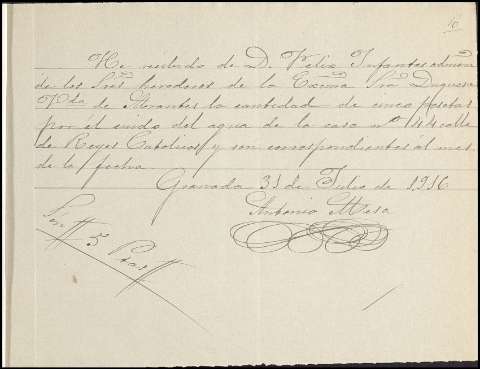 10
He recibido de D. Felix Infantes admor
de los Sres herederos de la Excma Sra Duquesa
Vda de Abrantes la cantidad de cinco pesetas
por el cuido del agua de la casa nº 44 calle
de Reyes Catolicos y son correspondientes al mes
de la fecha
Granada 31 de Julio de 1916
Antonio Mesa
Son # 5 Ptas #